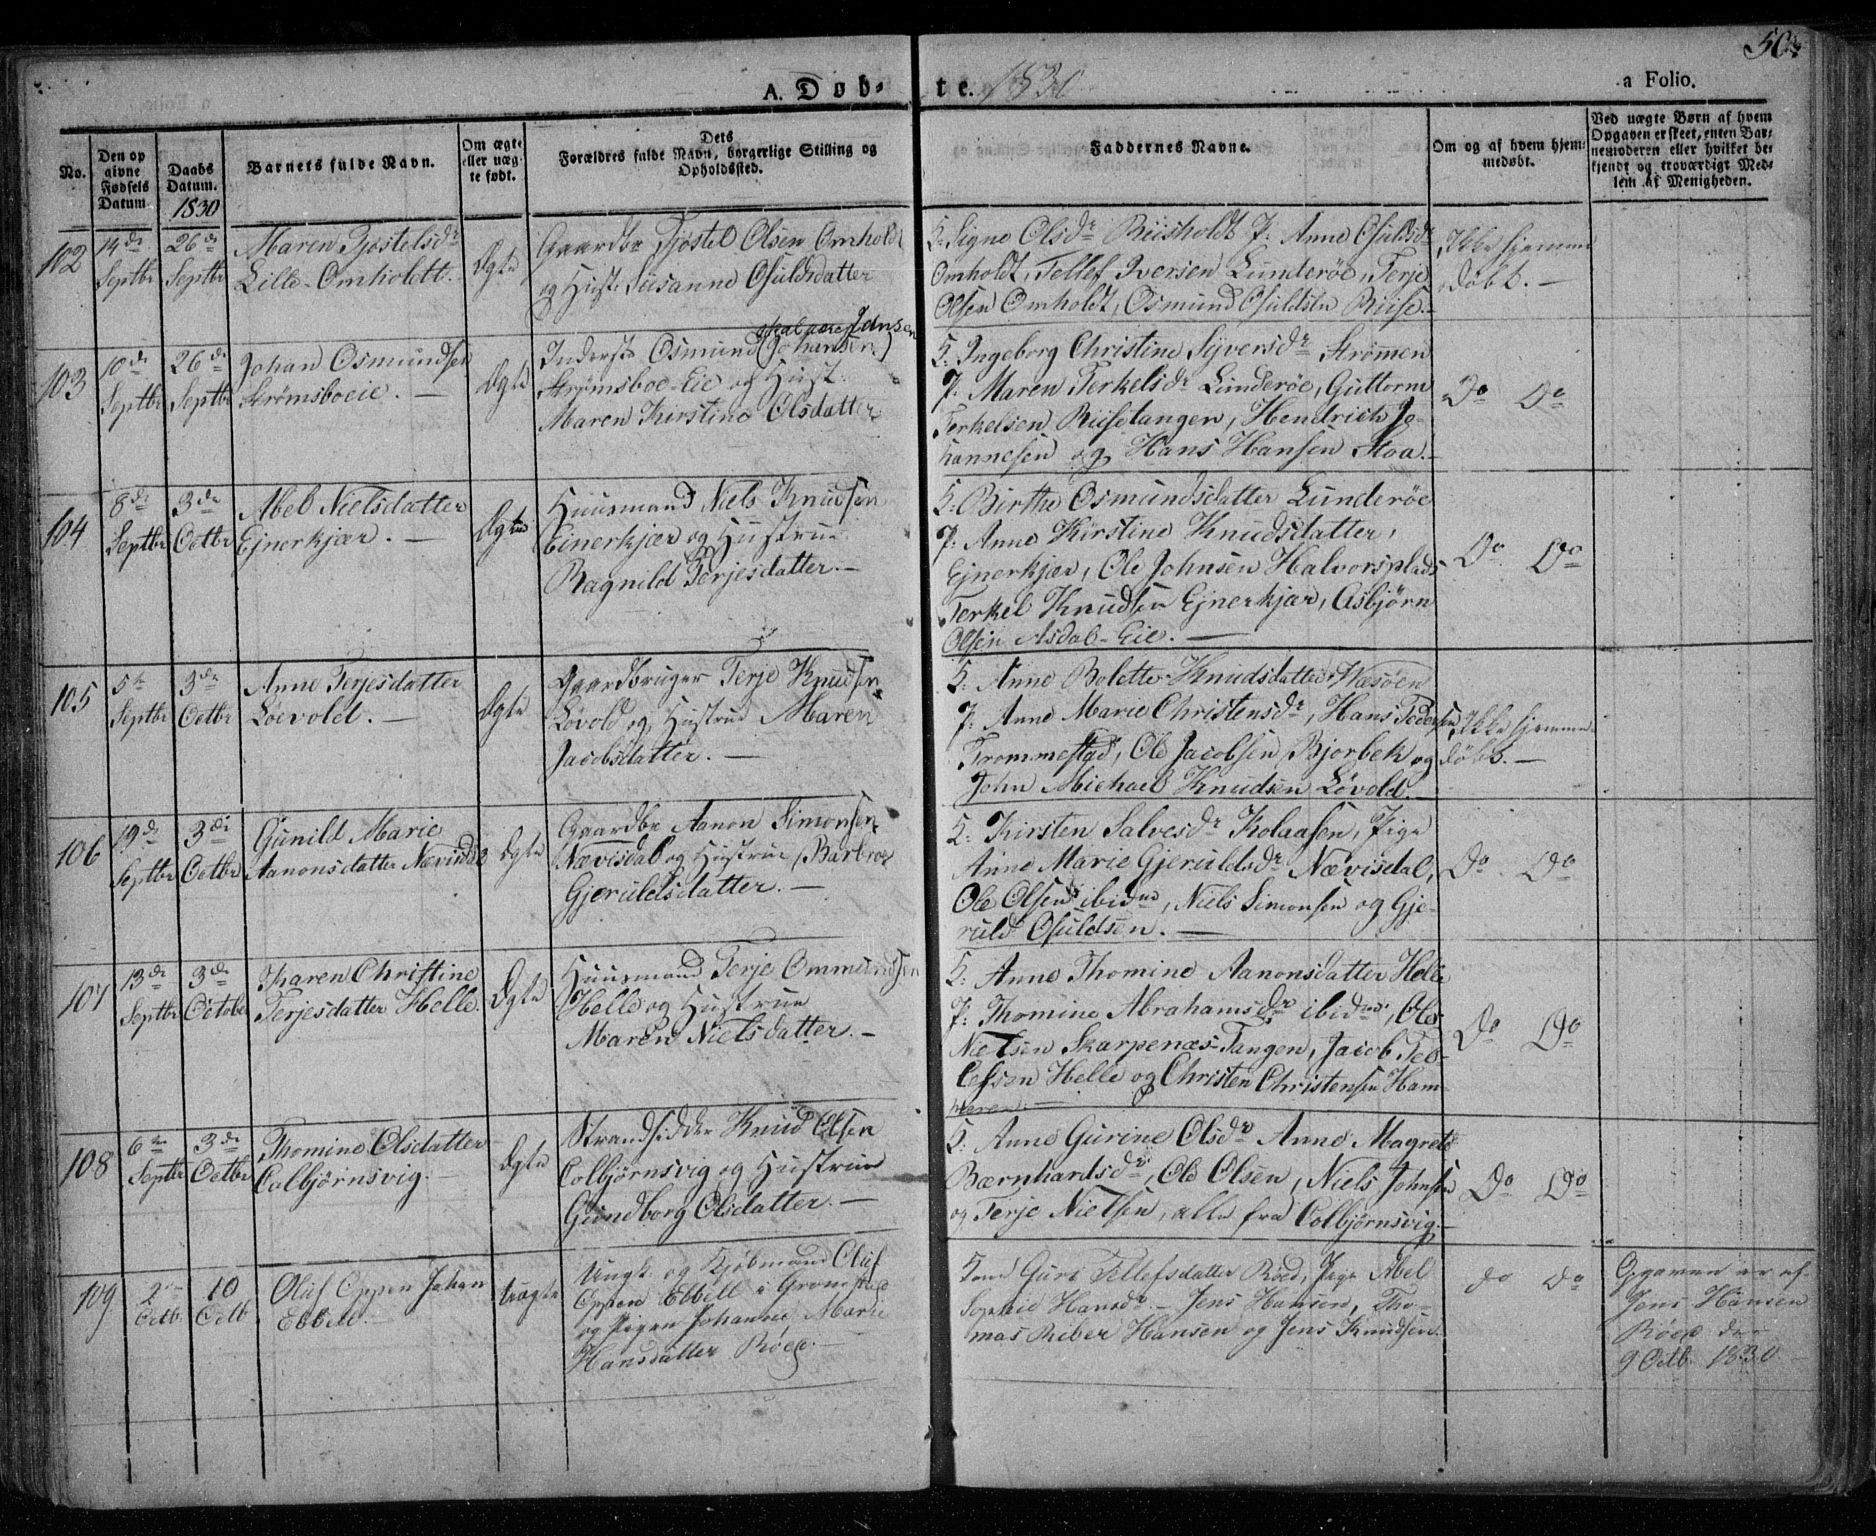 50.
A. Døb- te. 1830
a Folio.
No.
Den op
givne
Fødsels
Datum
Daabs
Datum.
1830
Barnets fulde Navn.
Om ægte
eller uæg-
te født.
Dets
Forældres fulde Navn, borgerlige Stilling og
Opholdssted.
Faddernes Navne.
Om og af hvem hjem-
medøbt.
Ved uægte Børn af hvem
Opgaven er skeet, enten Bar-
nemoderen eller hvilket be-
kjendt og troværdigt Med-
lem af Menigheden.
102
14de
Septbr
26de
Septbr
Maren Tjøstelsdr
Lille-Omholdt.
Ægte
Gaardbr Tjøstel Olsen Omholdt
og Hust. Susanne Osuldsdatter
K: Signe Olsdr Riisholdt P: Anne Osuldsdr
Omholdt, Tellef Iversen Lunderøe, Terje
Olsen Omholdt, Osmund Osuldsen Riise.
Ikke hjemme
døbt. —
103
10de
Septbr
26de
Septbr
Johan Osmundsen
Strømsboeie. —
Ægte
skal være Jansen
Inderst Osmund (Johansen)
Strømsboe-Eie og Hust.
Maren Kirstine Olsdatter
K. Ingeborg Christine Syversdr Strømen
P. Maren Terkelsdr Lunderøe, Guttorm
Terkelsen Riisetangen, Hendrich Jo-
hannesen og Hans Hansen Stoa.—
Do Do
104
8de
Septbr
3de
Octbr
Abel Nielsdatter
Ejnerkjær. —
Ægte
Huusmand Niels Knudsen
Einerkjær og Hustrue
Ragnild Terjesdatter.—
K: Birthe Osmundsdatter Lunderøe
P: Anne Kirstine Knudsdatter,
Ejnerkjær, Ole Johnsen Halvorsplads
Terkel Knudsen Ejnerkjær, Asbjørn
Olsen Asdal-Eie. —
Do Do
105
5te
Septbr
3de
Octbr
Anne Terjesdatter
Løevold. —
Ægte
Gaardbruger Terje Knudsen
Løvold og Hustrue Maren
Jacobsdatter. —
K. Anne Bolette Knudsdatter Næsøen
P. Anne Marie Christensdr, Hans Pedersen
Trommestad, Ole Jacobsen Bjorbek og
John Michael Knudsen Løvold.
Ikke hjemme
døbt. —
106
19de
Septbr
3de
Octbr
Gunild Marie
Aanonsdatter Nævisdal
Ægte
Gaardbr Aanon Simonsen
Nævisdal og Hustrue Barbroe
Gjeruldsdatter. —
K. Kirsten Salvesdr Kolaasen, Pige
Anne Marie Gjeruldsdr Nævisdal,
Ole Olsen ibid, Niels Simonsen og Gje-
ruld Osuldsen. —
Do Do
107
13de
Septbr
3de
October
Karen Christine
Terjesdatter Helle.
Ægte
Huusmand Terje Ommundsen
Helle og Hustrue
Maren Nielsdatter. —
K. Anne Thomine Aanonsdatter Helle
P: Thomine Abrahamsdr ibid, Ole
Nielsen Skarpenæs-Tangen, Jacob Tel-
lefsen Helle og Christen Christensen Ham-
meren. —
Do Do
108
6te
Septbr
3de
Octbr
Thomine Olsdatter
Colbjørnsvig.
Ægte
Strandsidder Knud Olsen
Colbjørnsvig og Hustrue
Gundborg Olsdatter. —
K. Anne Gurine Olsdr Anne Magrete
Bærnhardsdr, Ole Olsen, Niels Johnsen
og Terje Nielsen, alle fra Colbjørnsvig.—
Do Do
109
2
Octb.
10
Octb
Oluf Eppen Johan
Ebbell. —
Uægte
Ungk. og Kjøbmand Oluf
Eppen Ebbell i Grømstad
og Pigen Johanne Marie
Hansdatter Røed. —
Kone Guri Tellefsdatter Røed, Pige Abel
Sophie Hansdr — Jens Hansen, Tho-
mas Riber Hansen og Jens Knudsen.
do do
Opgaven er af
Jens Hansen
Røed den
9 Octb. 1830.